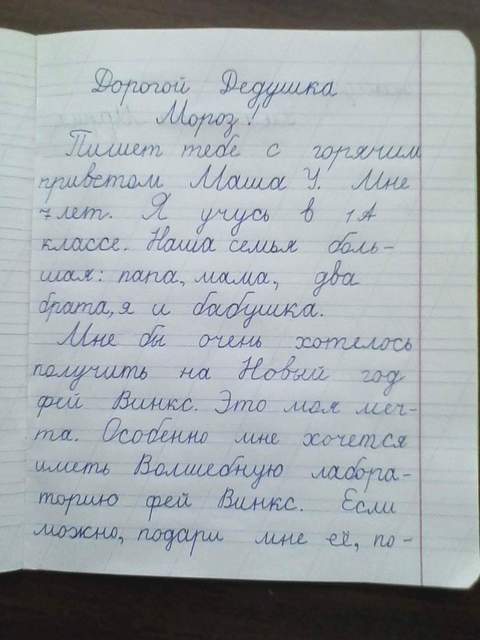 Дорогой Дедушка
Мороз!
Пишет тебе с горячим
приветом Маша У. Мне
7 лет. Я учусь в 1А
классе. Наша семья боль-
шая: папа, мама, два
брата, я и бабушка.
Мне бы очень хотелось
получить на Новый год
фей Винкс. Это моя меч-
та. Особенно мне хочется
иметь Волшебную лабора-
торию фей Винкс. Если
можно, подари мне её, по-